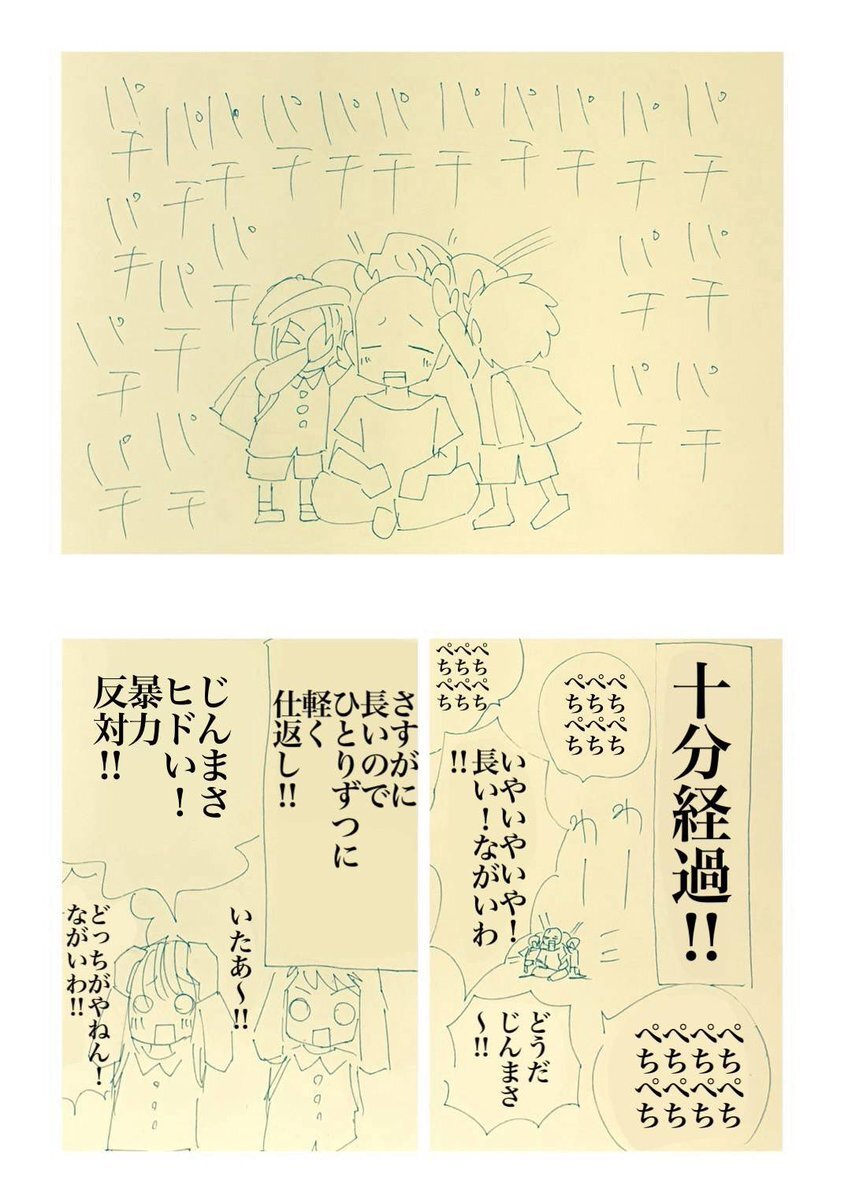 パチパチパチ
パチパチパチ
パチ
パチ
パチ
パチ
パチ
パチ
パチパチ
パチパチパチ
パチパチパチパチ
十分経過!!
ぺちぺち
ぺちぺち
ぺちぺち
わー
わー
ぺちぺち
ぺちぺち
ぺちぺち
いやいやいや！
長い！ながいわ
!!
どうだ
じんまさ
〜!!
ぺちぺち
ぺちぺち
ぺちぺち
ぺちぺち
さすがに
長いので
ひとりずつに
軽く
仕返し!!
じんまさ
ヒドい！
暴力
反対!!
いたあ〜!!
どっちがやねん！
ながいわ!!